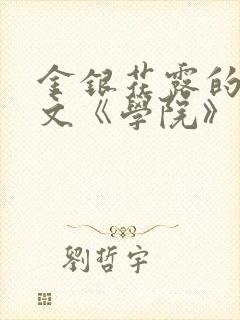 金銀花露的
文《學院》
劉哲宇